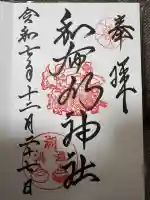 奉拝
和布刈神社
令和七年十二月二十七日